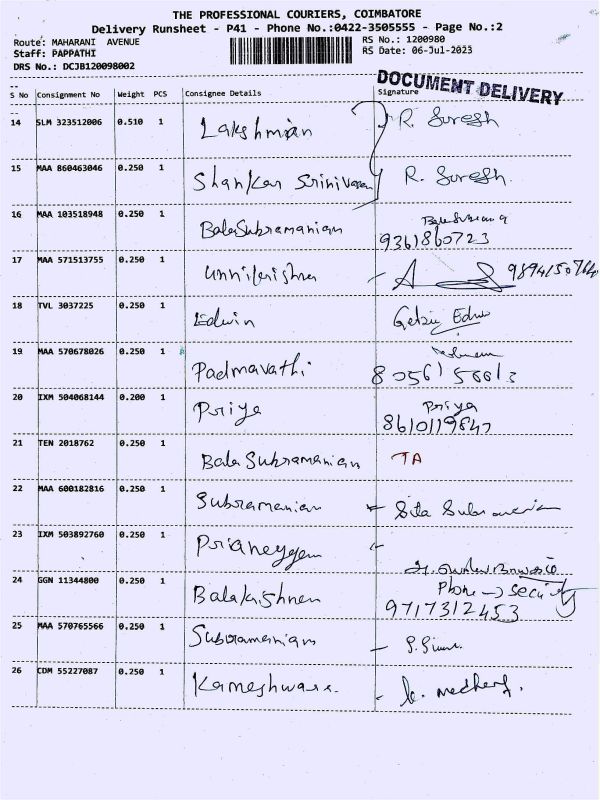 THE PROFESSIONAL COURIERS, COIMBATORE
Delivery Runsheet - P41 - Phone No.:0422-3505555 - Page No.:2
Route: MAHARANI AVENUE RS No.: 1200980
Staff: PAPPATHI RS Date: 06-Jul-2023
DRS No.: DCJB120098002
DOCUMENT DELIVERY
S No Consignment No Weight PCS Consignee Details Signature
14 SLM 323512006 0.510 1 Lakshmian R. Suresh
15 MAA 860463046 0.250 1 Shankar Srinivasan R. Suresh
16 MAA 103518948 0.250 1 BalaSubramanian
9361860723
17 MAA 571513755 0.250 1 Unnikrishna
18 TVL 3037225 0.250 1 Edwin
19 MAA 570678026 0.250 1 Padmavathi
20 IXM 504068144 0.200 1 Priya Priya
8610119847
21 TEN 2018762 0.250 1 Bala Subramanian TA
22 MAA 600182816 0.250 1 Subramanian - Sita Subramanian
23 IXM 503892760 0.250 1
24 GGN 11344800 0.250 1 Balakrishnan Phone → Security
9717312453
25 MAA 570765566 0.250 1 Subramanian
26 CDM 55227087 0.250 1 Kameshwara